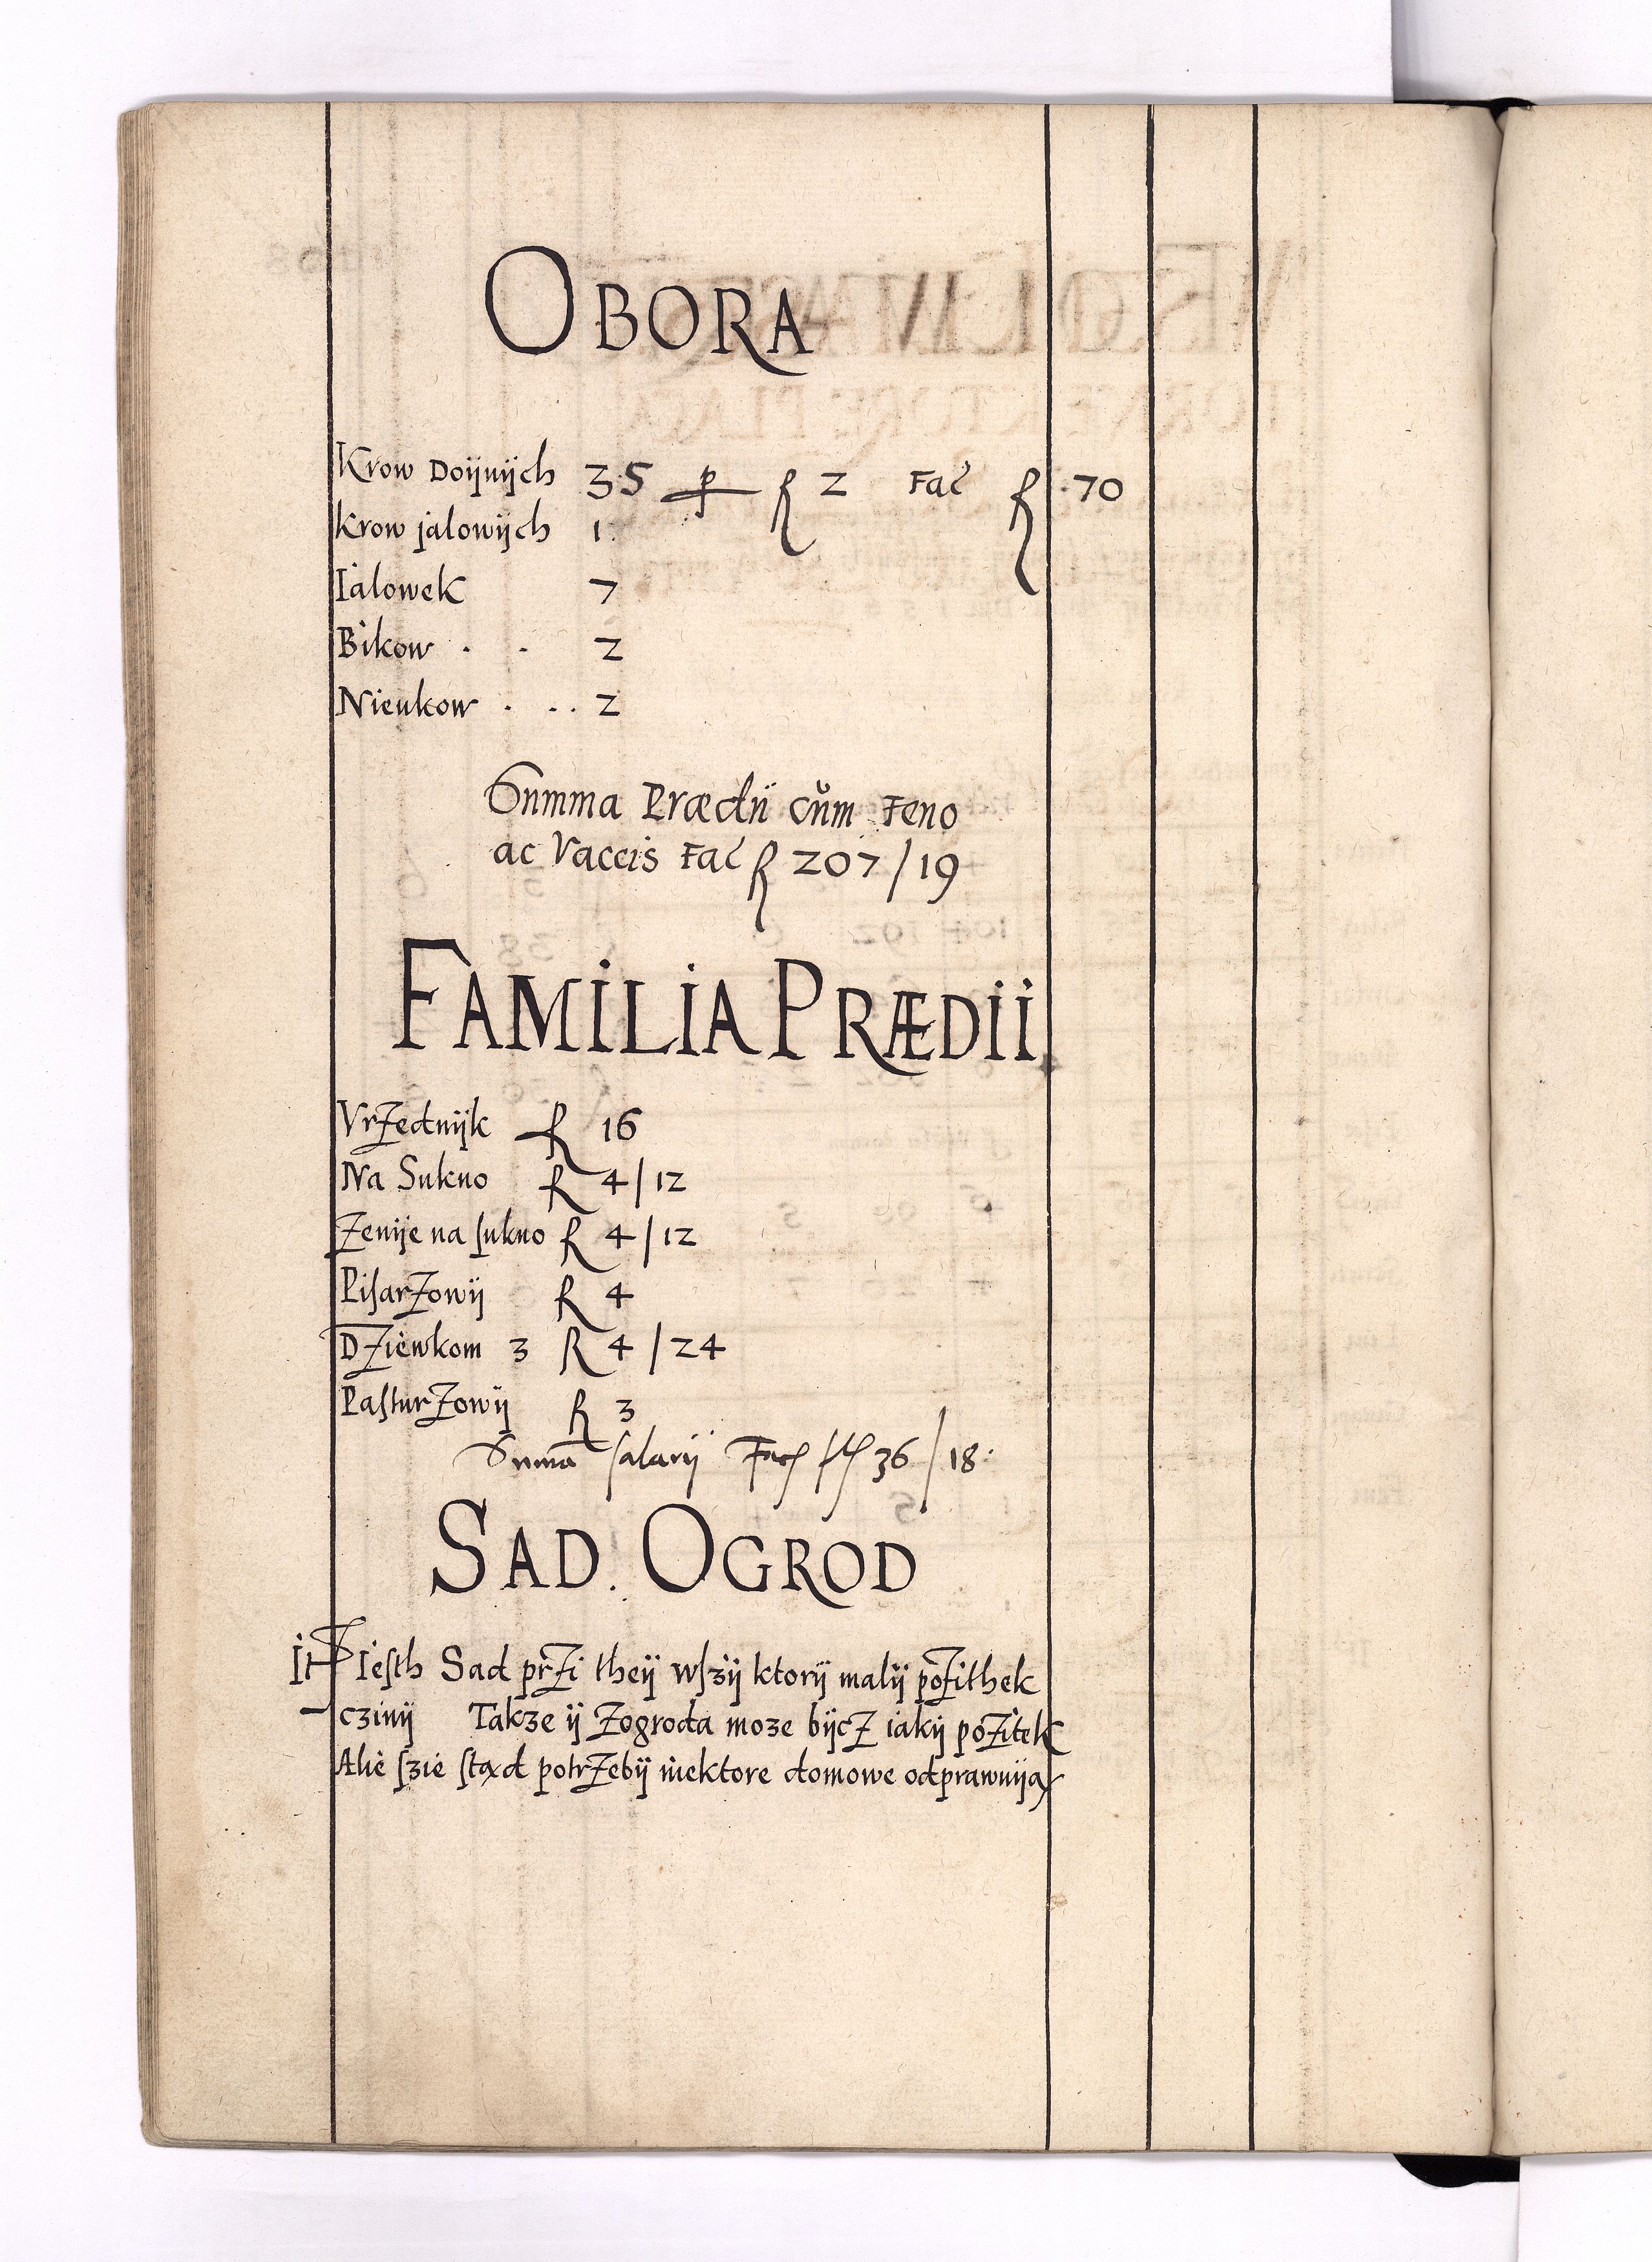 OBORA
Krow Doijnijch 35 p fl 2 Fac fl 70
Krow jalowijch 1
Ialowek 7
Bikow . . 2
Nieukow . . . 2
Summa Prædii cŭm Feno
ac Vaccis Fac fl 207/19
FAMILIA PRÆDII
Vrzednijk fl 16
Na Sukno fl 4/12
Zenije na sukno fl 4/12
Pisarzowij fl 4
Dziewkom 3 fl 4/24
Pasturzowij fl 3
Suma salarij Facit fl 36/18
SAD. OGROD
It Iesth Sad przi theij wszij ktorij malij pozithek
czinij Takze ij Zogroda moze bijcz iakij pozitek
Alie szie stąd potrzebij niektore domowe odprawuiją